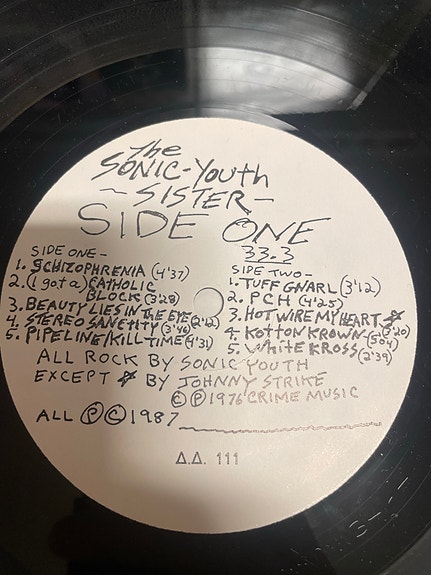 The
SONIC-YOUTH
~SISTER-
SIDE ONE
33.3
SIDE ONE-
1. SCHIZOPHRENIA (4'37)
2. (I got a) CATHOLIC
BLOCK (3'28)
3. BEAUTY LIES IN THE EYE (2'12)
4. STEREO SANCTITY (3'46)
5. PIPELINE/KILL TIME (4'31)
SIDE TWO-
1. TUFF GNARL (3'12)
2. PCH (4'25)
3. HOT WIRE MY HEART ☆ (3'20)
4. KOTTON KROWN (504)
5. White KROSS (2'39)
ALL ROCK BY SONIC YOUTH
EXCEPT ☆ BY JOHNNY STRIKE
© ℗ 1976 CRIME MUSIC
ALL ℗ © 1987
Δ.Δ. 111